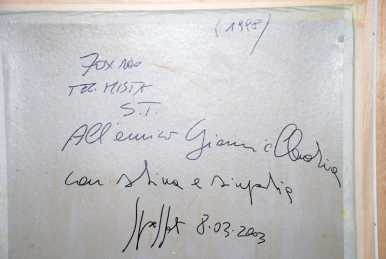 (1998)
70x100
TEC. MISTA
S.T.
All'amico Gianni e Claudia
con stima e simpatia
8.03.2003